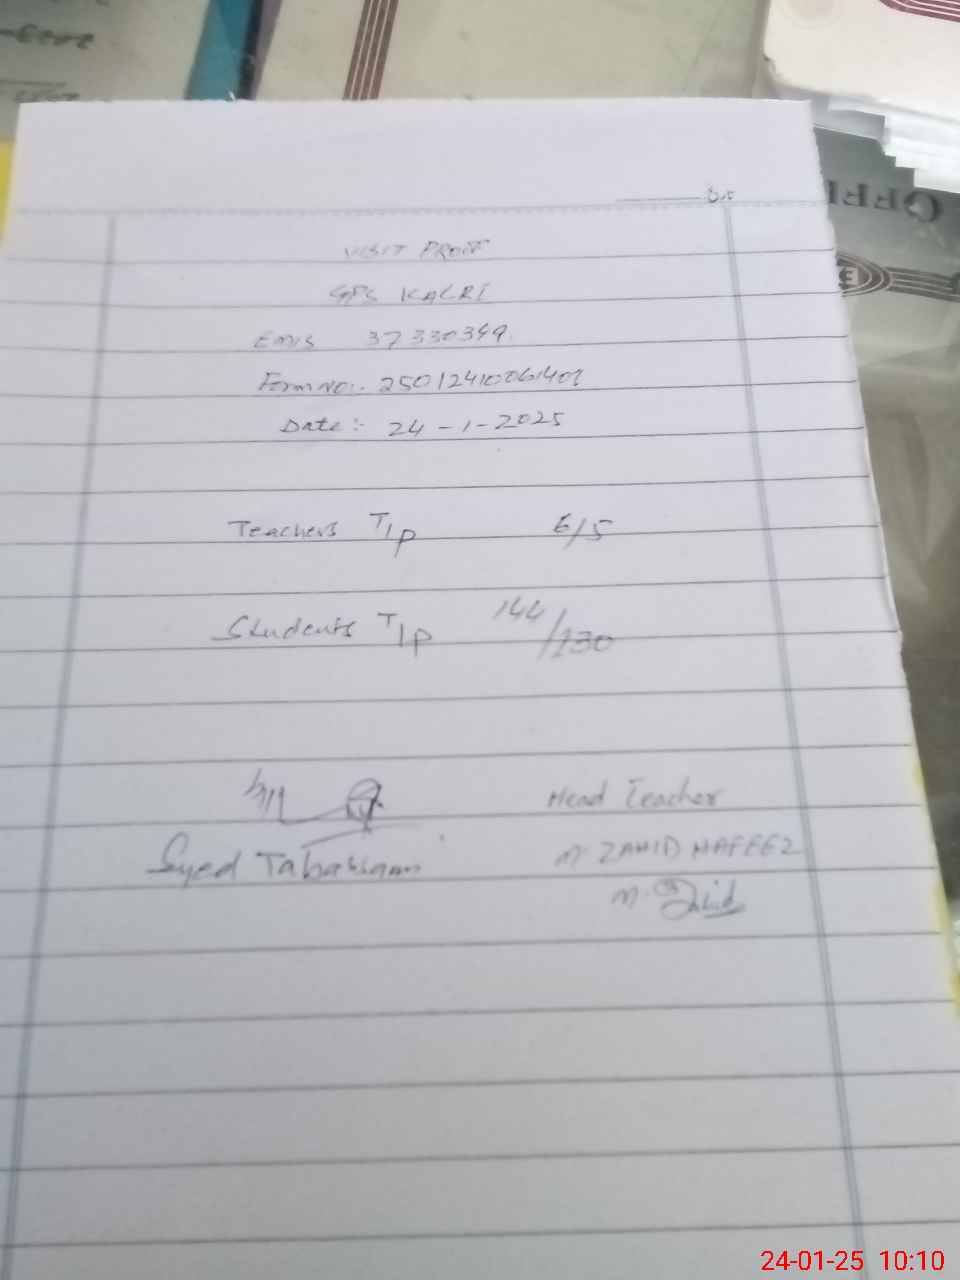 VISIT PROOF
GPS KALRI
EMIS 37330349.
Form No:. 2501241006401
Date :- 24-1-2025
Teachers T/P 6/5
Students T/P 144/130
Head Teacher
Syed Tabassam
M. ZAHID HAFEEZ
M. Zahid
24-01-25 10:10